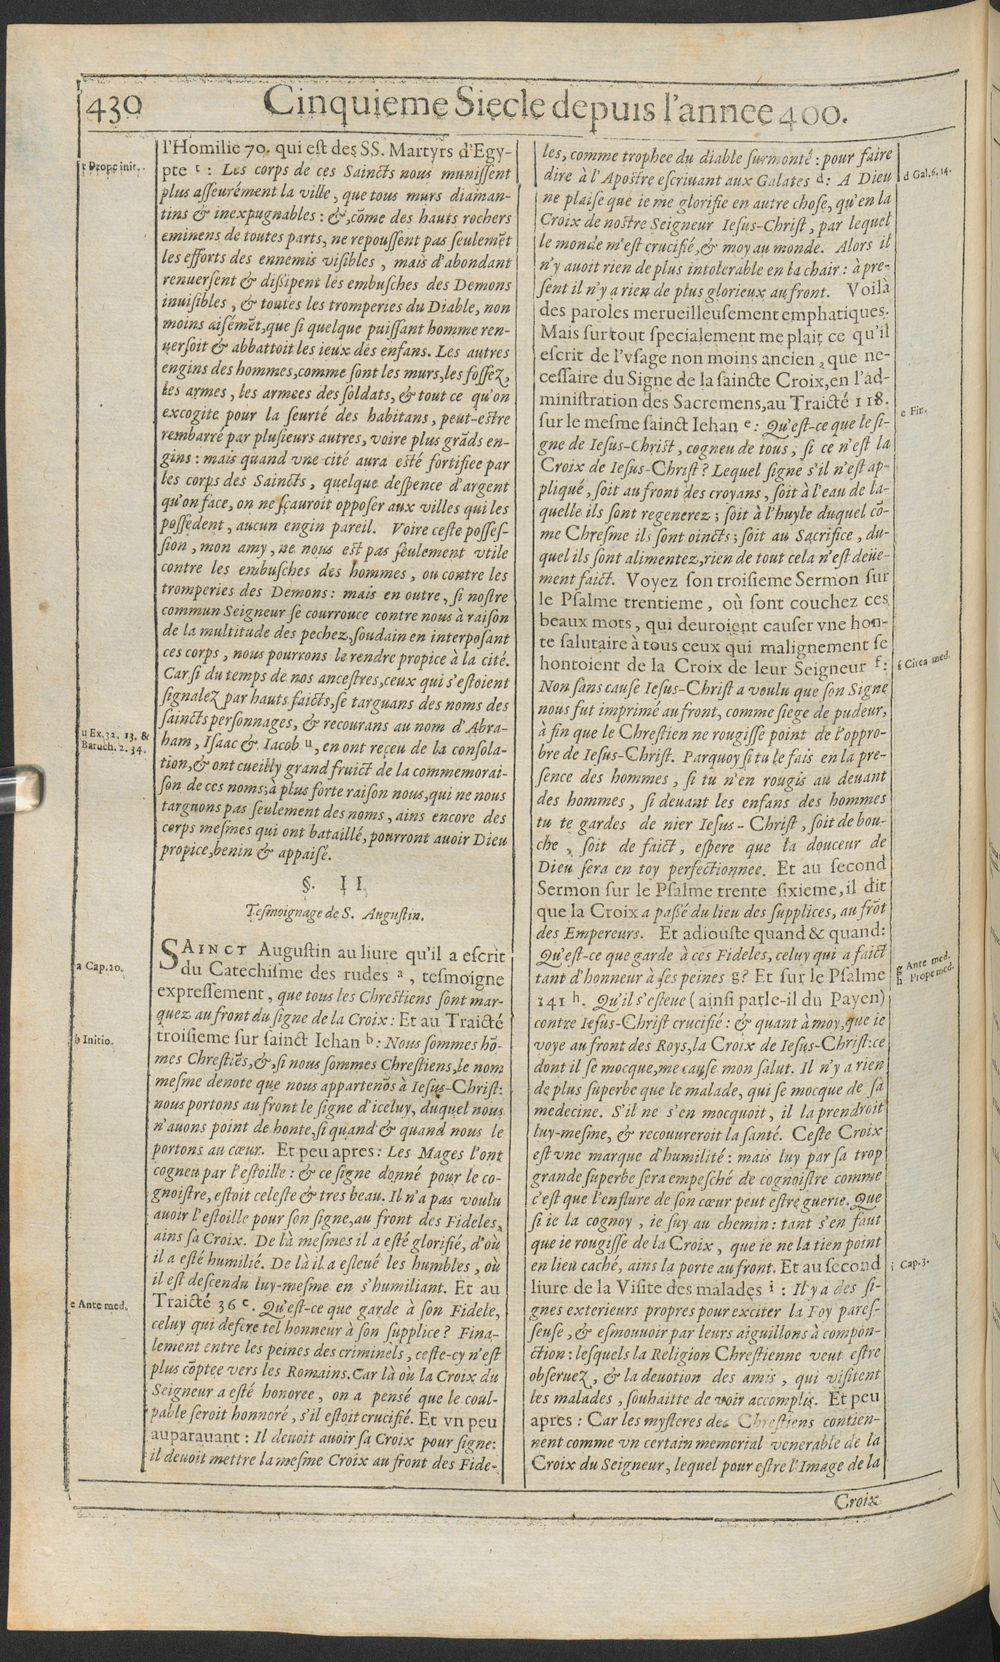 430 Cinquieme Siecle depuis l'annee 400.
l'Homilie 70. qui est des SS. Martyrs d'Egy-
t Prope init.
pte t : Les corps de ces Saincts nous munissent
plus asseurément la ville, que tous murs diaman-
tins & inexpugnables : &, cōme des hauts rochers
eminens de toutes parts, ne repoussent pas seulemēt
les efforts des ennemis visibles, mais d'abondant
renuersent & dissipent les embusches des Demons
inuisibles, & toutes les tromperies du Diable, non
moins aisémēt, que si quelque puissant homme ren-
uersoit & abbattoit les ieux des enfans. Les autres
engins des hommes, comme sont les murs, les fossez,
les armes, les armees des soldats, & tout ce qu'on
excogite pour la seurté des habitans, peut-estre
rembarré par plusieurs autres, voire plus grāds en-
gins : mais quand vne cité aura esté fortifiee par
les corps des Saincts, quelque despence d'argent
qu'on face, on ne sçauroit opposer aux villes qui les
possedent, aucun engin pareil. Voire ceste posses-
sion, mon amy, ne nous est pas seulement vtile
contre les embusches des hommes, ou contre les
tromperies des Demons : mais en outre, si nostre
commun Seigneur se courrouce contre nous à raison
de la multitude des pechez, soudain en interposant
ces corps, nous pourrons le rendre propice à la cité.
Car si du temps de nos ancestres, ceux qui s'estoient
signalez par hauts faicts, se targuans des noms des
saincts personnages, & recourans au nom d'Abra-
u Ex. 32. 13. &
Baruch. 2. 34.
ham, Isaac & Iacob u, en ont reçeu de la consola-
tion, & ont cueilly grand fruict de la commemorai-
son de ces noms; à plus forte raison nous, qui ne nous
targuons pas seulement des noms, ains encore des
corps mesmes qui ont bataillé, pourront auoir Dieu
propice, benin & appaisé.
§. II.
Tesmoignage de S. Augustin.
SAINCT Augustin au liure qu'il a escrit
a Cap. 20.
du Catechisme des rudes a, tesmoigne
expressement, que tous les Chrestiens sont mar-
quez au front du signe de la Croix : Et au Traicté
b Initio.
troisieme sur sainct Iehan b : Nous sommes hō-
mes Chrestiēs, &, si nous sommes Chrestiens, le nom
mesme denote que nous appartenōs à Iesus-Christ :
nous portons au front le signe d'iceluy, duquel nous
n'auons point de honte, si quand & quand nous le
portons au cœur. Et peu apres : Les Mages l'ont
cogneu par l'estoille : & ce signe donné pour le co-
gnoistre, estoit celeste & tres beau. Il n'a pas voulu
auoir l'estoille pour son signe, au front des Fideles,
ains sa Croix. De là mesmes il a esté glorifié, d'où
il a esté humilié. De là il a esleué les humbles, où
il est descendu luy-mesme en s'humiliant. Et au
c Ante med.
Traicté 36 c. Qu'est-ce que garde à son Fidele,
celuy qui defere tel honneur à son supplice ? Fina-
lement entre les peines des criminels, ceste-cy n'est
plus cōptee vers les Romains. Car là où la Croix du
Seigneur a esté honoree, on a pensé que le coul-
pable seroit honnoré, s'il estoit crucifié. Et vn peu
auparauant : Il deuoit auoir sa Croix pour signe :
il deuoit mettre la mesme Croix au front des Fide-
les, comme trophee du diable surmonté : pour faire
dire à l'Apostre escriuant aux Galates d : A Dieu
d Gal. 6. 14.
ne plaise que ie me glorifie en autre chose, qu'en la
Croix de nostre Seigneur Iesus-Christ, par lequel
le monde m'est crucifié, & moy au monde. Alors il
n'y auoit rien de plus intolerable en la chair : à pre-
sent il n'y a rien de plus glorieux au front. Voilà
des paroles merueilleusement emphatiques.
Mais sur tout specialement me plait ce qu'il
escrit de l'vsage non moins ancien, que ne-
cessaire du Signe de la saincte Croix, en l'ad-
ministration des Sacremens, au Traicté 118.
sur le mesme sainct Iehan e : Qu'est-ce que le si-
e Fin.
gne de Iesus-Christ, cogneu de tous, si ce n'est la
Croix de Iesus-Christ ? Lequel signe s'il n'est ap-
pliqué, soit au front des croyans, soit à l'eau de la-
quelle ils sont regenerez ; soit à l'huyle duquel cō-
me Chresme ils sont oincts ; soit au Sacrifice, du-
quel ils sont alimentez, rien de tout cela n'est deüe-
ment faict. Voyez son troisieme Sermon sur
le Psalme trentieme, où sont couchez ces
beaux mots, qui deuroient causer vne hon-
te salutaire à tous ceux qui malignement se
hontoient de la Croix de leur Seigneur f :
f Circa med.
Non sans cause Iesus-Christ a voulu que son Signe
nous fut imprimé au front, comme siege de pudeur,
à fin que le Chrestien ne rougisse point de l'oppro-
bre de Iesus-Christ. Parquoy si tu le fais en la pre-
sence des hommes, si tu n'en rougis au deuant
des hommes, si deuant les enfans des hommes
tu te gardes de nier Iesus-Christ, soit de bou-
che, soit de faict, espere que la douceur de
Dieu sera en toy perfectionnee. Et au second
Sermon sur le Psalme trente sixieme, il dit
que la Croix a passé du lieu des supplices, au frōt
des Empereurs. Et adiouste quand & quand :
Qu'est-ce que garde à ces Fideles, celuy qui a faict
tant d'honneur à ses peines g ? Et sur le Psalme
g Ante med.
h Prope med.
141 h. Qu'il s'esleue (ainsi parle-il du Payen)
contre Iesus-Christ crucifié : & quant à moy, que ie
voye au front des Roys, la Croix de Iesus-Christ : ce
dont il se mocque, me cause mon salut. Il n'y a rien
de plus superbe que le malade, qui se mocque de sa
medecine. S'il ne s'en mocquoit, il la prendroit
luy-mesme, & recouureroit la santé. Ceste Croix
est vne marque d'humilité : mais luy par sa trop
grande superbe sera empesché de cognoistre comme
c'est que l'enflure de son cœur peut estre guerie. Que
si ie la cognoy, ie suy au chemin : tant s'en faut
que ie rougisse de la Croix, que ie ne la tien point
en lieu caché, ains la porte au front. Et au second
i Cap. 3.
liure de la Visite des malades i : Il y a des si-
gnes exterieurs propres pour exciter la Foy pares-
seuse, & esmouuoir par leurs aiguillons à compon-
ction : lesquels la Religion Chrestienne veut estre
obseruez, & la deuotion des amis, qui visitent
les malades, souhaitte de voir accomplis. Et peu
apres : Car les mysteres des Chrestiens contien-
nent comme vn certain memorial venerable de la
Croix du Seigneur, lequel pour estre l'Image de la
Croix